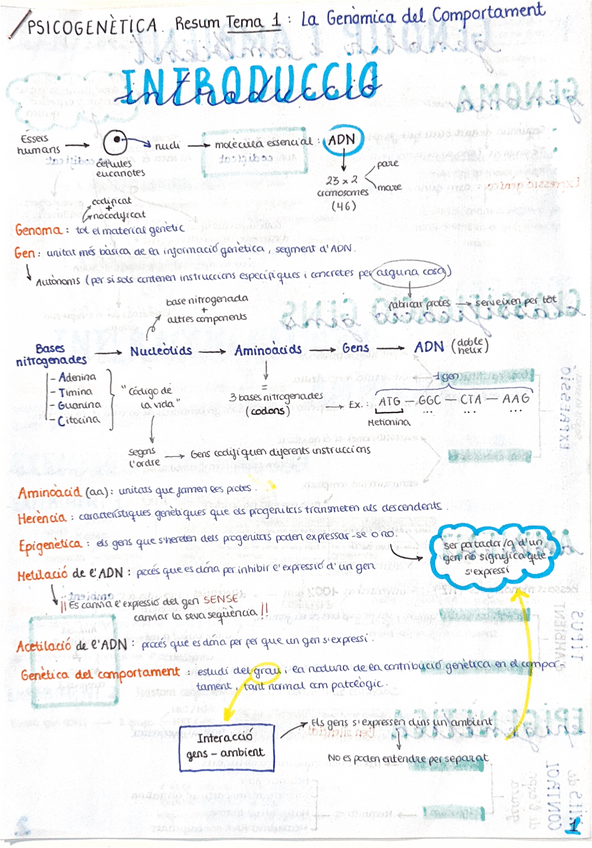 PSICOGENÈTICA. Resum Tema 1: La Genòmica del Comportament
INTRODUCCIÓ
introducció
Essers humans → nucli → molècula essencial: ADN
cèl·lules eucariotes
23 x 2 cromosomes (46)
pare
mare
codificat
+
nocodificat
Genoma: tot el material genètic
Gen: unitat més bàsica de la informació genètica, segment d'ADN.
Autònoms (per si sols contenen instruccions específiques i concretes per alguna cosa)
fabricar protes → serveixen per tot
base nitrogenada
+
altres components
Bases nitrogenades → Nucleòtids → Aminoàcids → Gens → ADN (doble hèlix)
- Adenina
- Timina
- Guanina
- Citocina
"Código de la vida"
=
3 bases nitrogenades
(codons)
1 gen
→ Ex.: ATG - GGC - CTA - AAG
Metionina ... ... ...
Segons l'ordre → Gens codifiquen diferents instruccions
Aminoàcid (aa): unitats que formen les protes.
Herència: característiques genètiques que els progenitors transmeten als descendents.
Epigenètica: els gens que s'hereten dels progenitors poden expressar-se o no.
ser portador/a d'un
gen no significa que
s'expressi
Metilació de l'ADN: procés que es dóna per inhibir l'expressió d'un gen
!! Es canvia l'expressió del gen SENSE
canviar la seva seqüència. !!
Acetilació de l'ADN: procés que es dóna per per que un gen s'expressi.
Genètica del comportament: estudi del grau i la natura de la contribució genètica en el compor
tament, tant normal com patològic.
Interacció
gens - ambient
→ Els gens s'expressen dins un ambient
No es poden entendre per separat
1